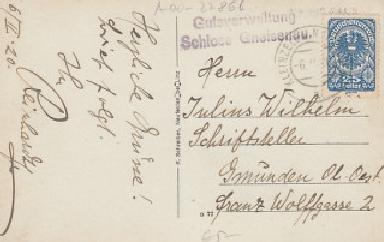 A-00-27866
Gutsverwaltung
Schloss Gneisenau.
6/II.20.
Herzliche Grüsse!
Brief folgt.
Ihr
Reinhardt
25
Heller
Herrn
Julius Wilhelm
Schriftsteller
Gmünden Ob. Oest
Franz Wolffgasse 2